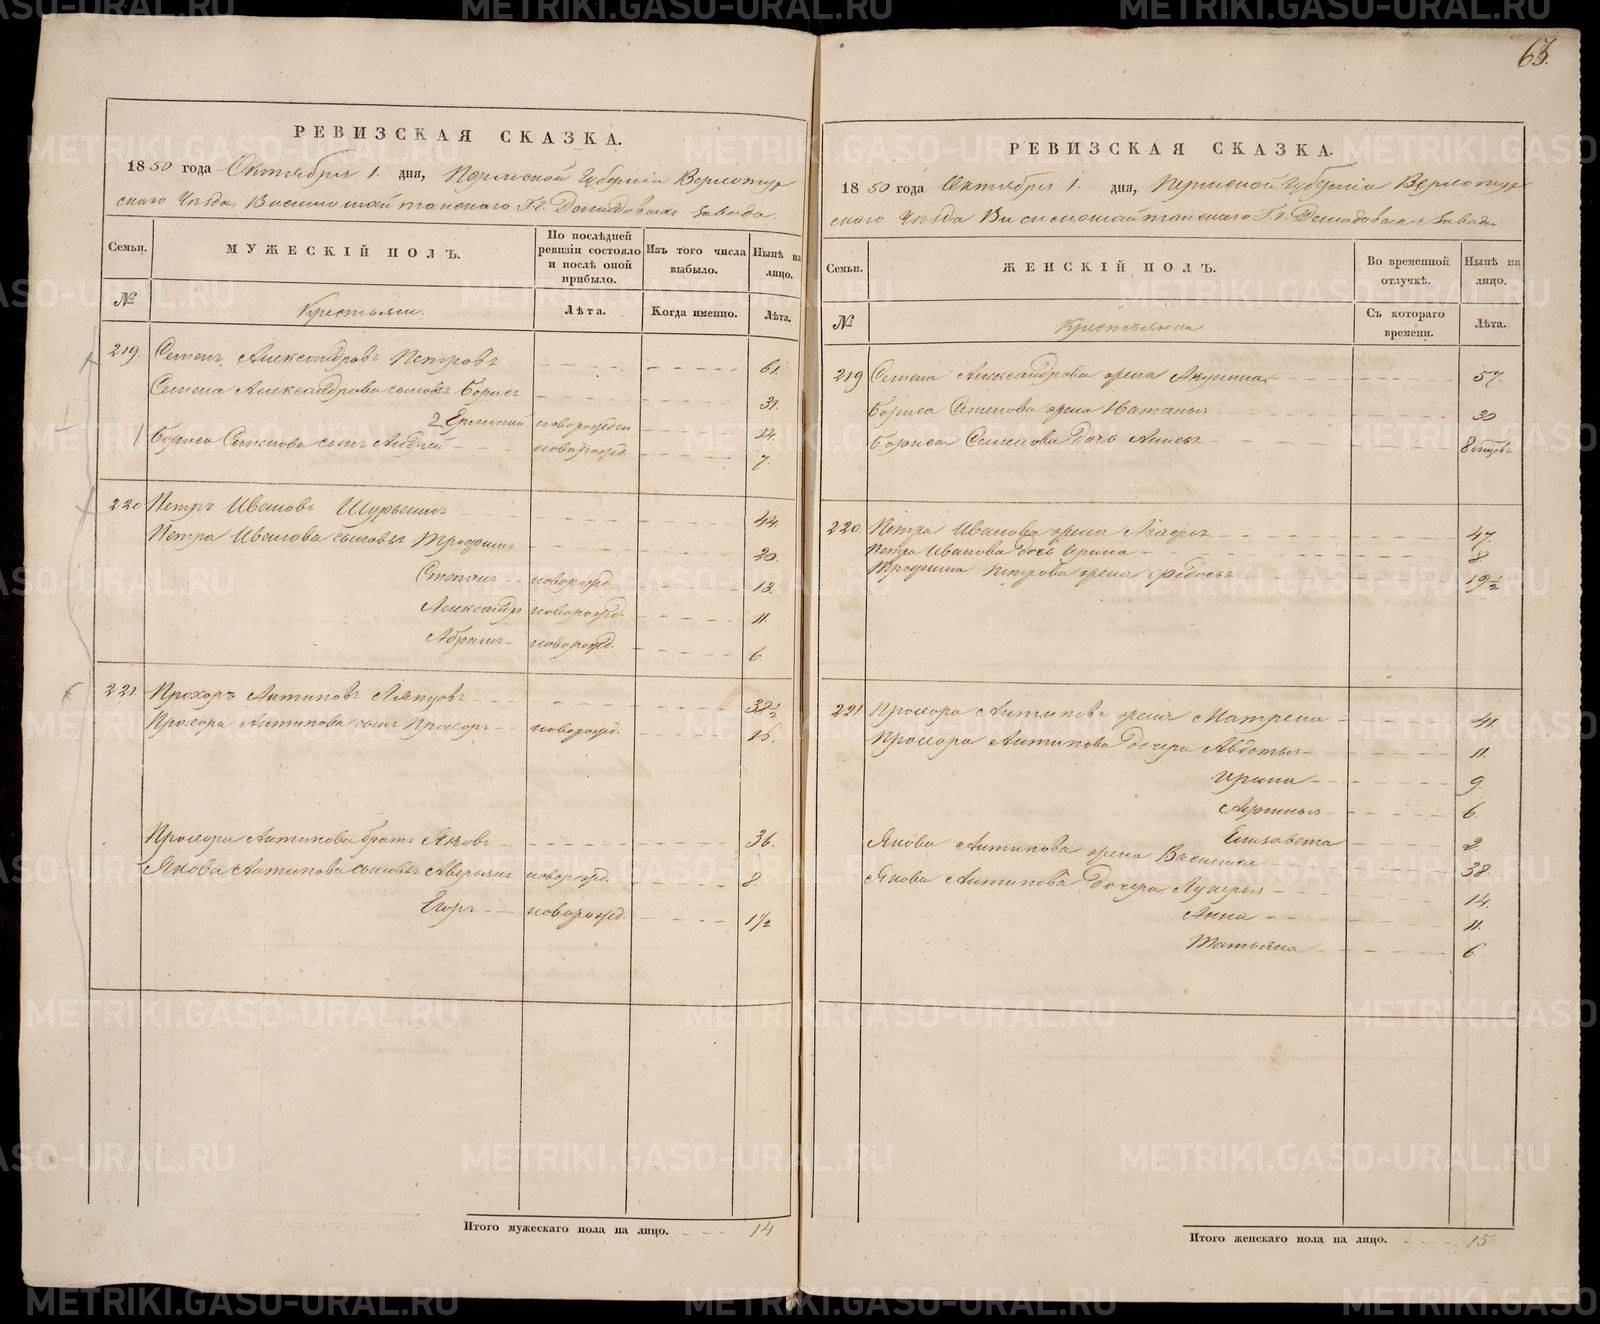 63.
РЕВИЗСКАЯ СКАЗКА.
1850 года Октября 1. дня, Пермской Губерніи Верхотур
скаго Уѣзда, Висимошайтанскаго Гг. Демидовыхъ завода.
Семьи. МУЖЕСКІЙ ПОЛЪ. По послѣдней ревизіи состояло и послѣ оной прибыло. Изъ того числа выбыло. Нынѣ на лицо.
№ Крестьяне. Лѣта. Когда именно. Лѣта.
219 Семенъ Александровъ Петровъ 61.
Семена Александрова сыновья Борисъ 31.
2 Ермолай новорожден
Бориса Семенова сынъ Андрей новорожд. 7
220 Петръ Ивановъ 44.
Петра Иванова сыновья Трофимъ 20.
Степанъ новорожд. 13.
Александръ новорожд. 11.
Абрамъ новорожд. 6
221. Прохоръ Антиповъ Ляпцовъ 38½
Прохора Антипова сынъ Прохоръ новорожд. 16.
Прохора Антипова братъ Яковъ 36.
Якова Антипова сыновья Аверьянъ новорожд. 8.
Егоръ новорожд. 1½
Итого мужескаго пола на лицо. 14
РЕВИЗСКАЯ СКАЗКА.
1850 года Октября 1. дня, Пермской Губерніи Верхотур
скаго Уѣзда Висимошайтанскаго Гг. Демидовыхъ завода
Семьи. ЖЕНСКІЙ ПОЛЪ. Во временной отлучкѣ. Нынѣ на лицо.
№ Крестьянка Съ котораго времени. Лѣта.
219 Семена Александрова жена Акулина 57.
Бориса Семенова жена Наталья 30
Бориса Семенова дочь Анисья 8 мѣсяцовъ
220. Петра Иванова жена 47.
Петра Иванова дочь Ирина 8
Трофима Петрова жена Федосья 19½
221. Прохора Антипова жена Матрена 41.
Прохора Антипова дочери Авдотья 11.
Ирина 9
Афимья 6.
Елизавета 2.
Якова Антипова жена Василиса 38.
Якова Антипова дочери Лукерья 14.
Анна 11.
Татьяна 6
Итого женскаго пола на лицо. 15
METRIKI.GASO-URAL.RU